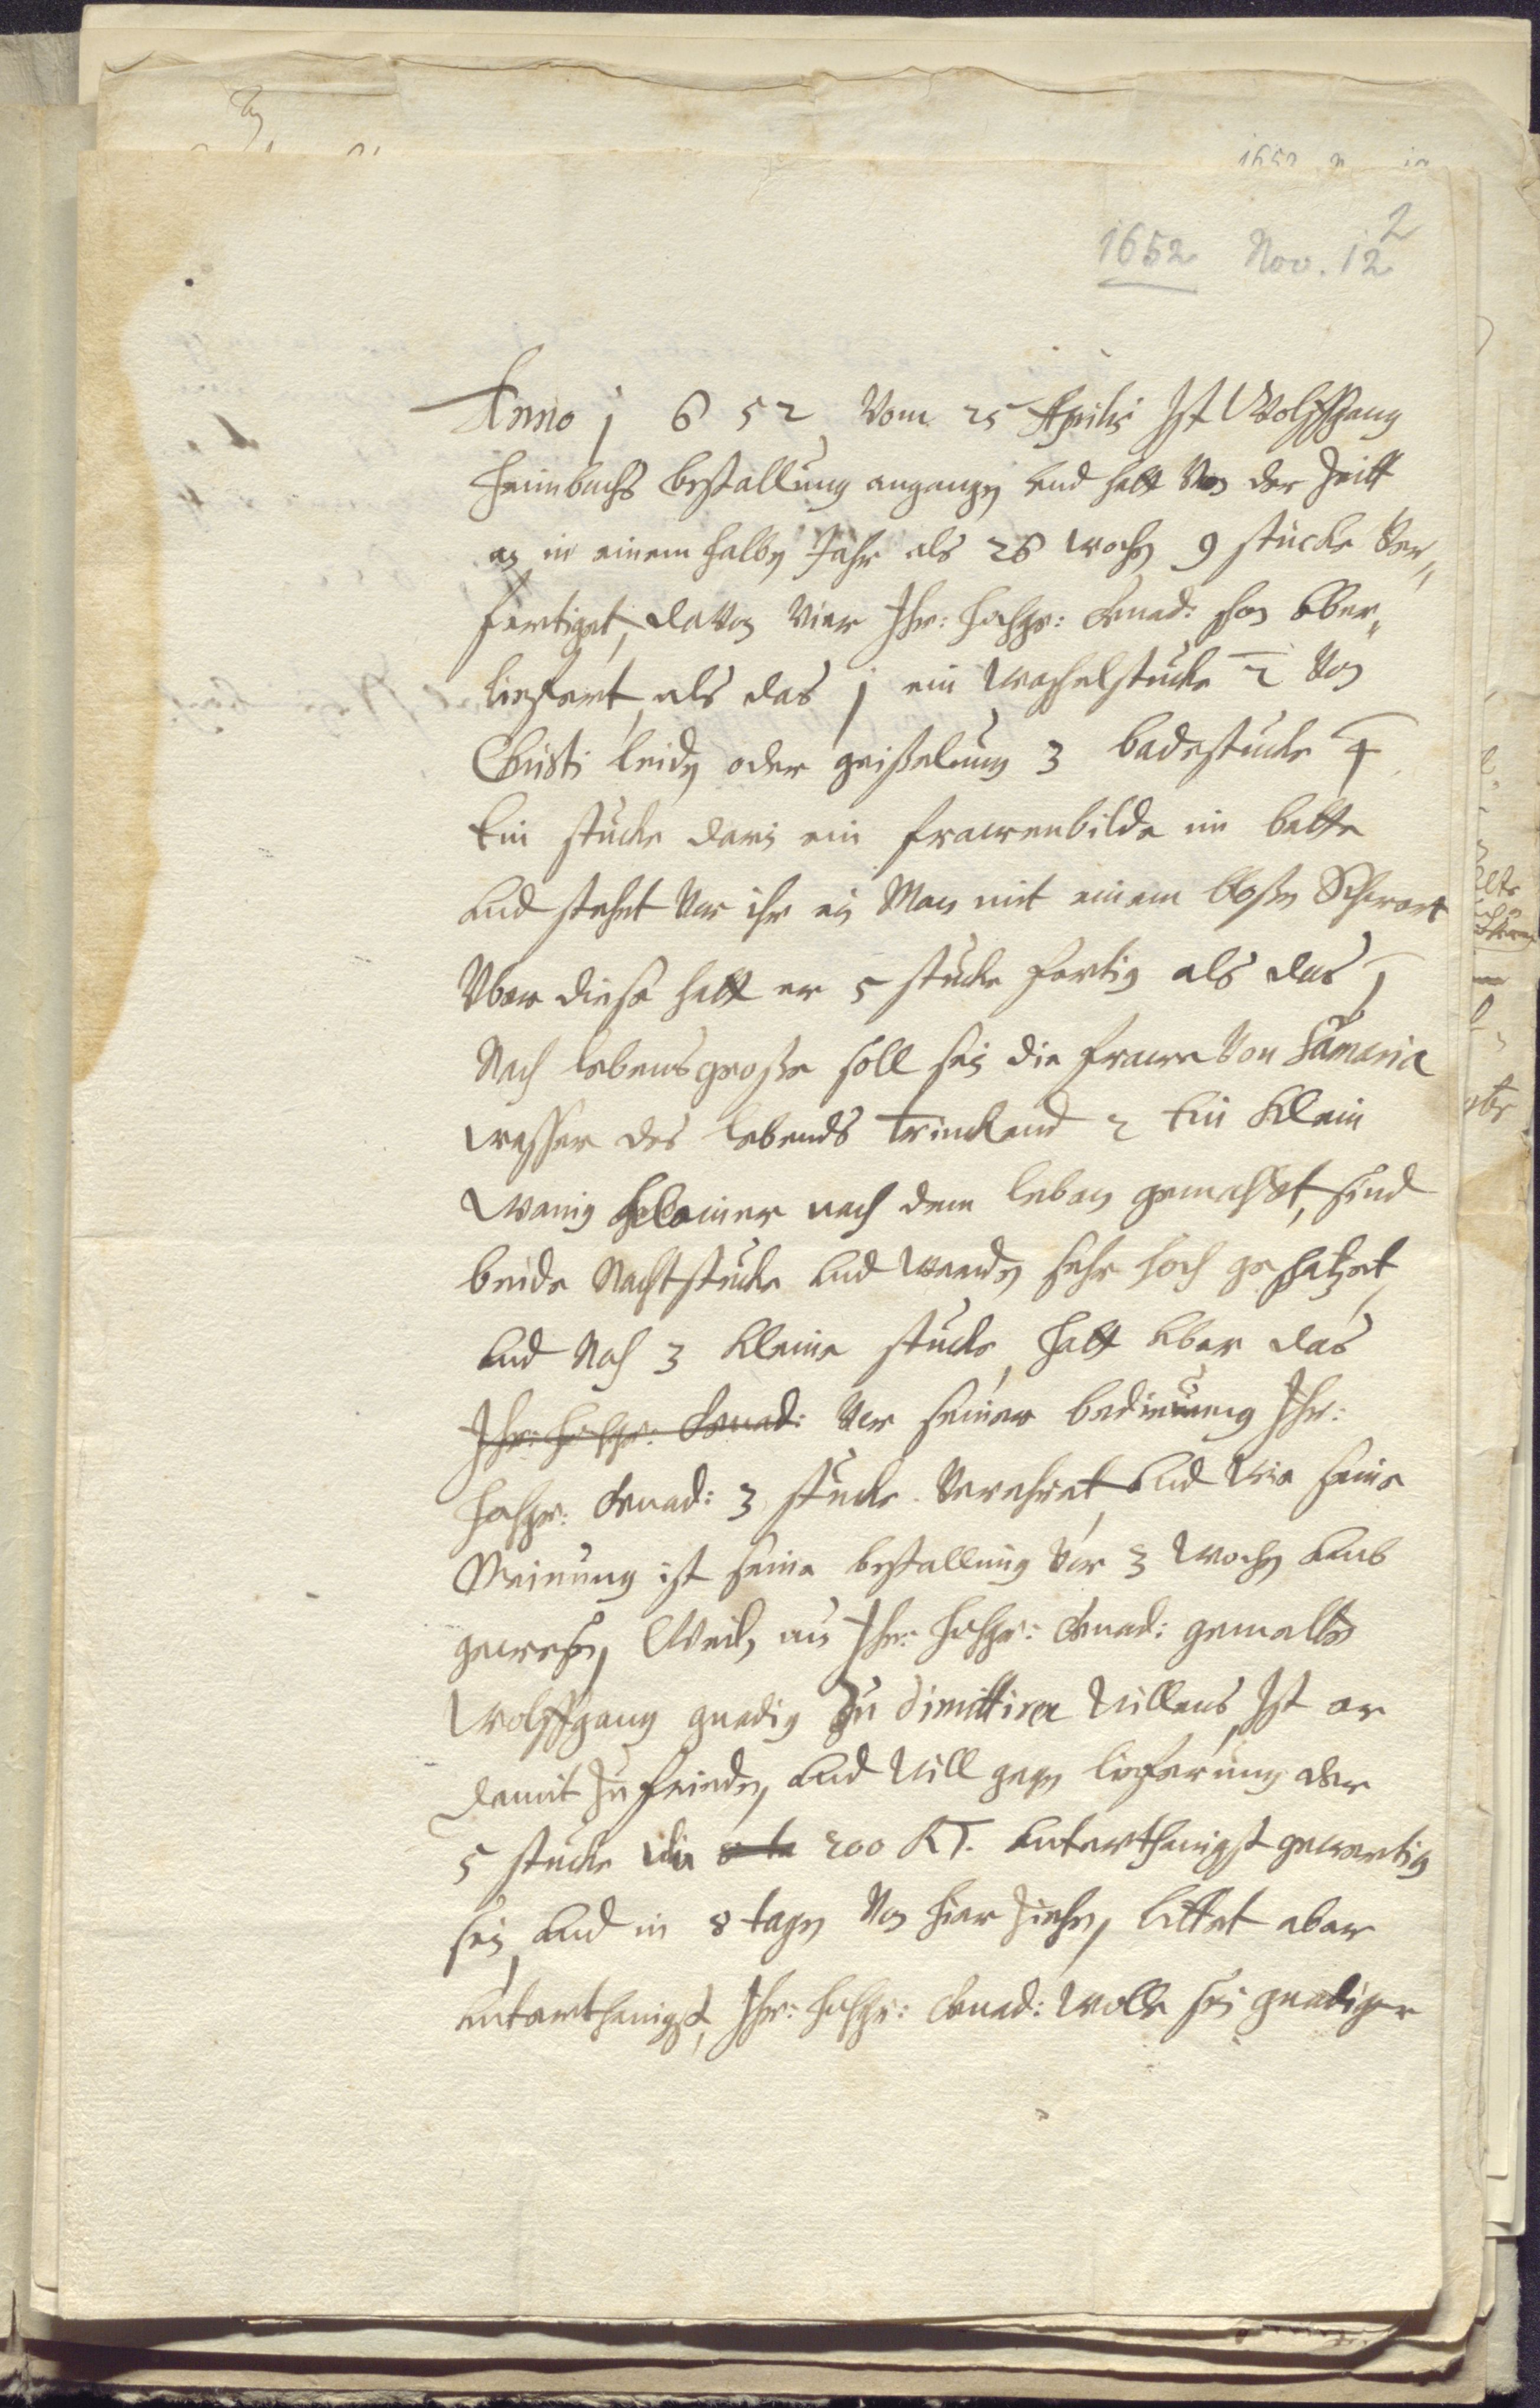 2
1652 Nov. 12
Anno j 6 52 Vom 25 Aprilis Ist Wolffgang
Heimbachs bestallung angangen und hatt Von der Zeitt
an in einem halben Jahr als 26 wochen 9 stucke Ver„
fertiget, davon Vier Ihr: Hochgr: Gnad: schon uber„
liefert, als das j ein wachselstucke 2 Von
Christi leiden oder geißelung 3 badestucke 4
Ein stucke darin ein frawenbilde im bette
und stehet Vor ihr ein Man mit einem bloßen Schwert
Uber diese hatt er 5 stucke fertig als das j
Nach lebensgroße soll sein die frawe Von Samaria
wasser des lebends trinckend 2 Ein klein
wenig kleiner nach dem leben gemachet, sind
beide Nachtstucke und werden sehr hoch geschatzet,
und Noch 3 kleine stucke, hatt uber das
Ihr: Hochgr: Gnad: Vor seiner bedienung Ihr:
Hochgr: Gnad: 3 stucke Verehret, und Wie seine
Meinung ist seine bestallung Vor 3 wochen umb
gewesen, Weil, nun Ihr: Hochgr: Gnad: gemelten
Wolffgang gnedig zu dimittiren Willens, Ist er
damit zu frieden, und Will gegen lieferung der
5 stucke die 200 RT. unterthenigst gewertig
sein, und in 8 tagen Von hier ziehen, bittet aber
unterthenigst, Ihr: Hochgr: Gnad: Wolle sein gnediger